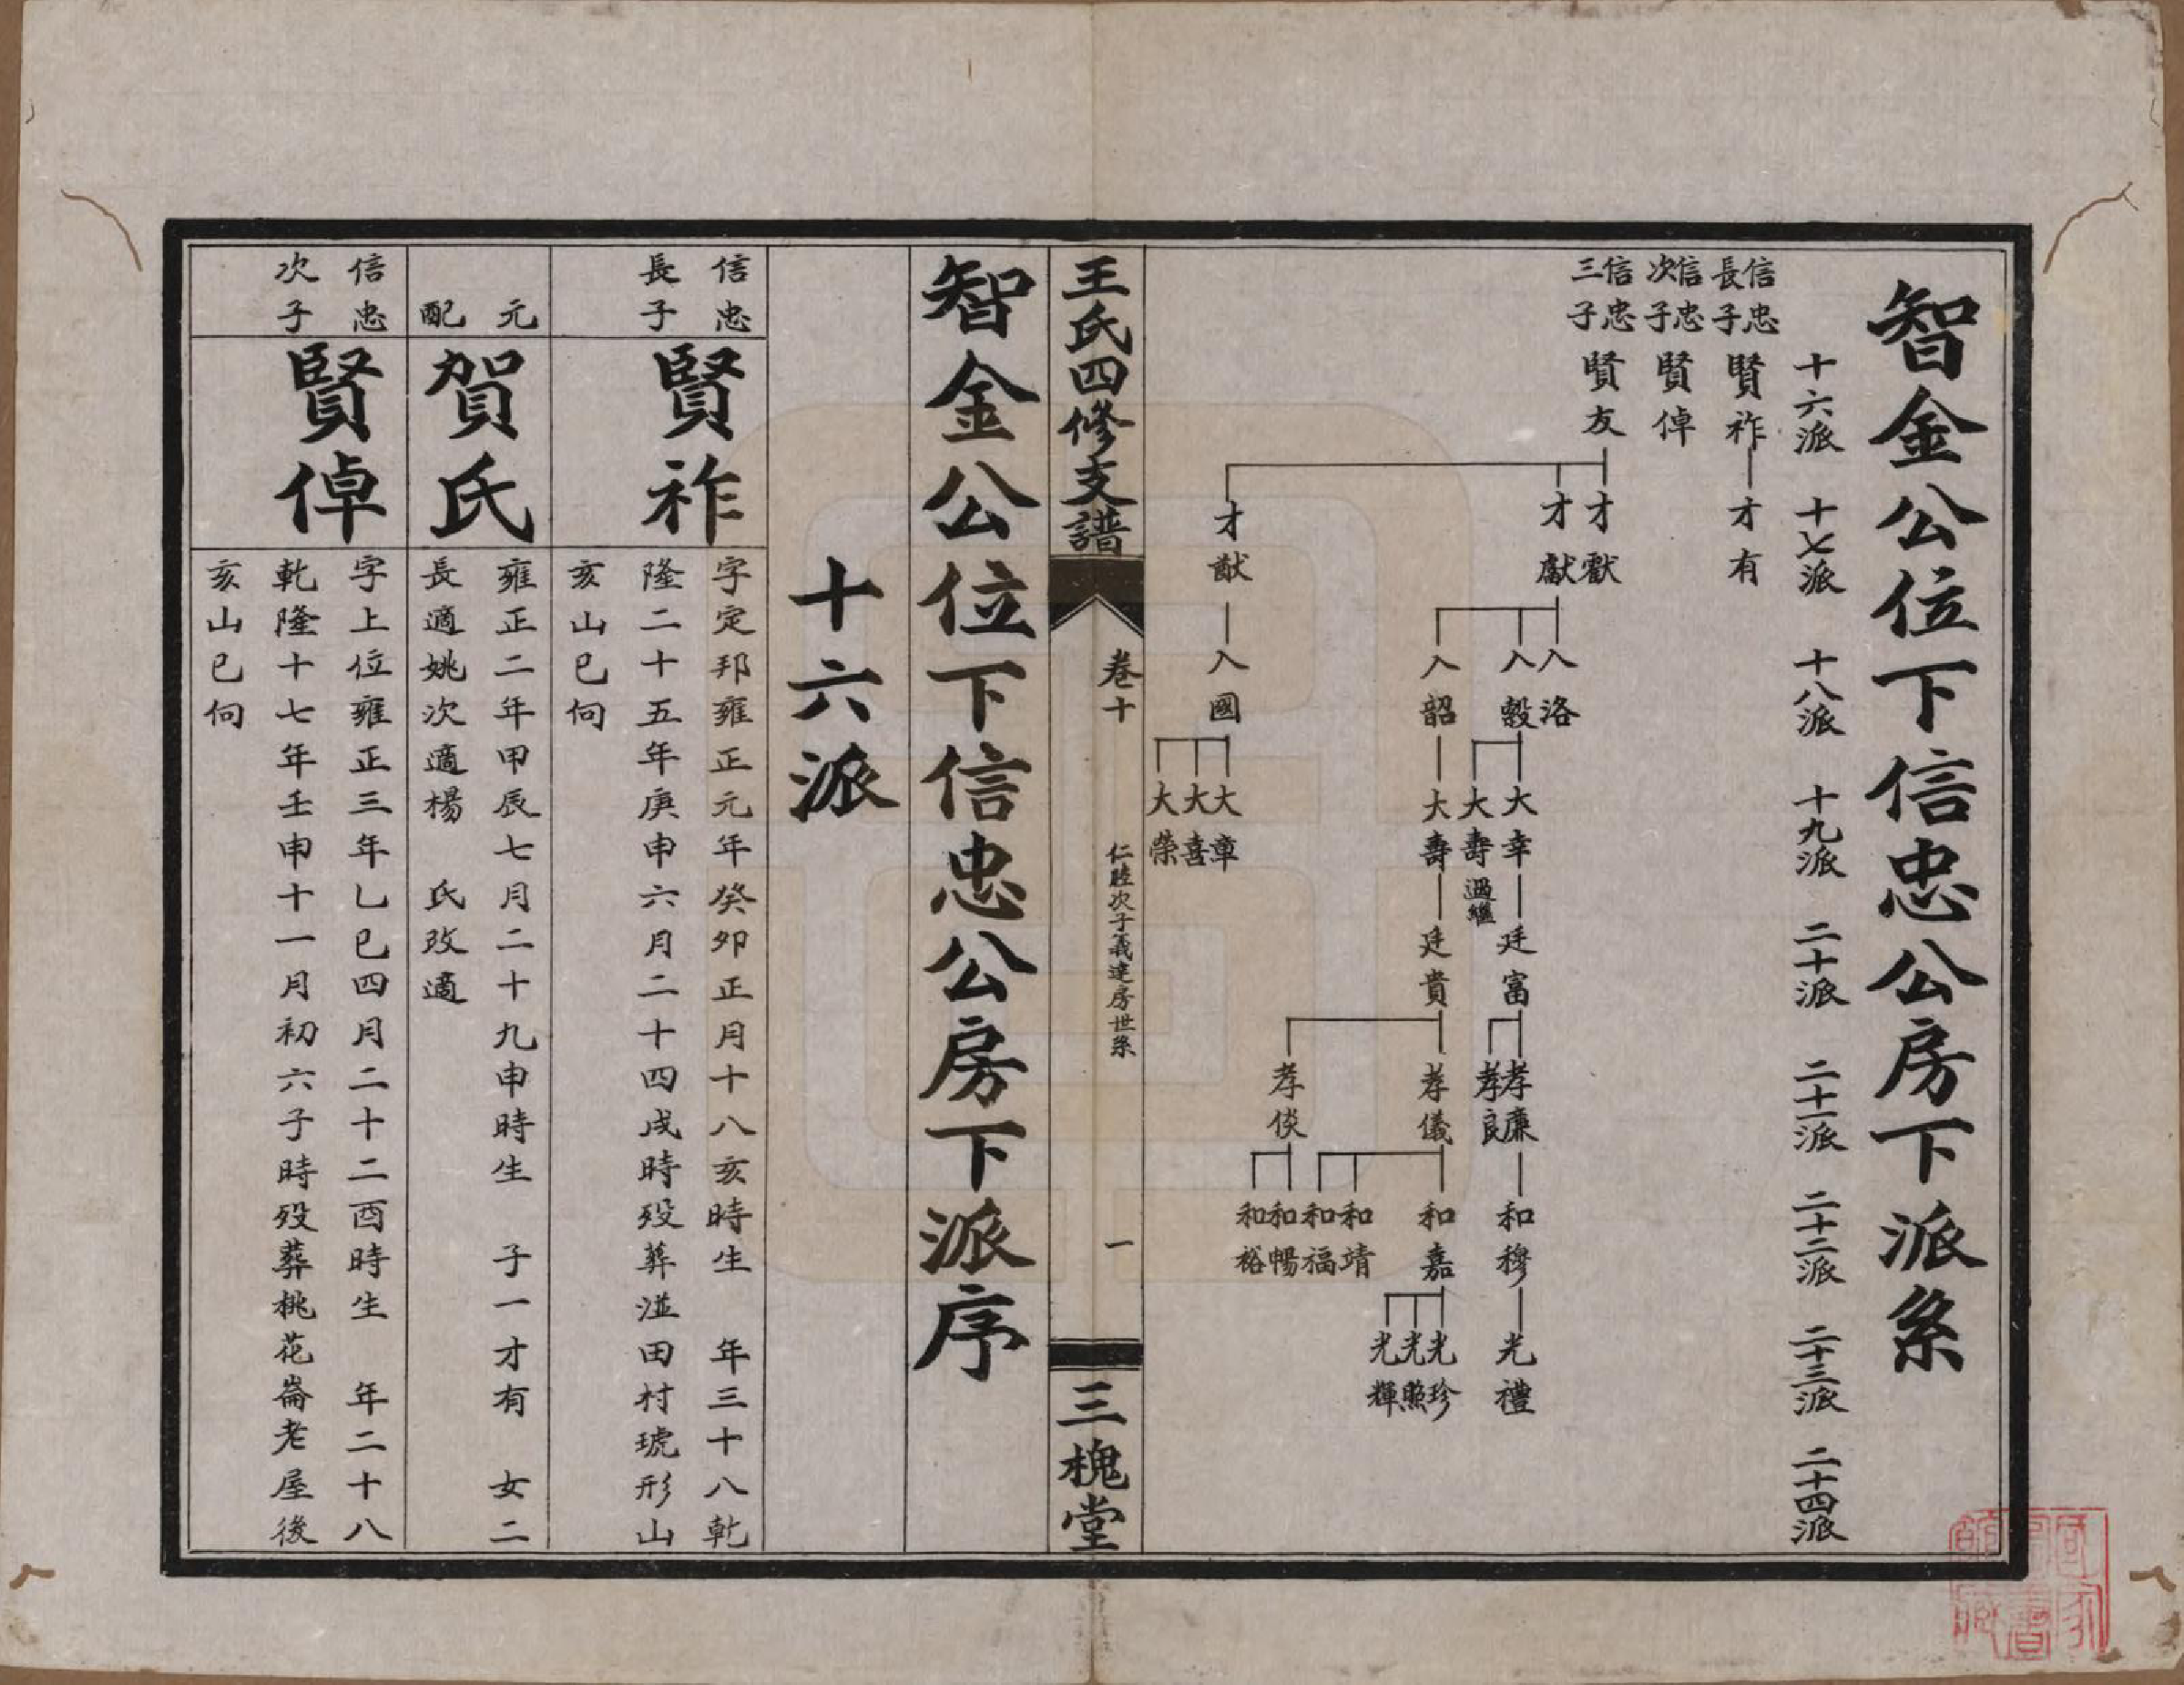 智金公位下信忠公房下派系
十六派 十七派 十八派 十九派 二十派 二十一派 二十二派 二十三派 二十四派
信忠長子 賢祚 才有
信忠次子 賢倬
信忠三子 賢友
才獻 才獻 才猷
入洛 入穀 入韶 入國
大幸 大壽過繼 大壽 大章 大喜 大榮
廷富 廷貴
孝廉 孝良 孝儀 孝倓
和穆 和嘉 和靖 和福 和暢 和裕
光禮 光珍 光熙 光輝
王氏四修支譜 卷十 仁睦次子義達房世系 一 三槐堂
智金公位下信忠公房下派序
十六派
信忠長子
賢祚
字定邦雍正元年癸卯正月十八亥時生 年三十八乾
隆二十五年庚申六月二十四戌時歿葬溢田村琥形山
亥山巳向
元配
賀氏
雍正二年甲辰七月二十九申時生 子一才有 女二
長適姚次適楊 氏改適
信忠次子
賢倬
字上位雍正三年乙巳四月二十二酉時生 年二十八
乾隆十七年壬申十一月初六子時歿葬桃花崙老屋後
亥山巳向